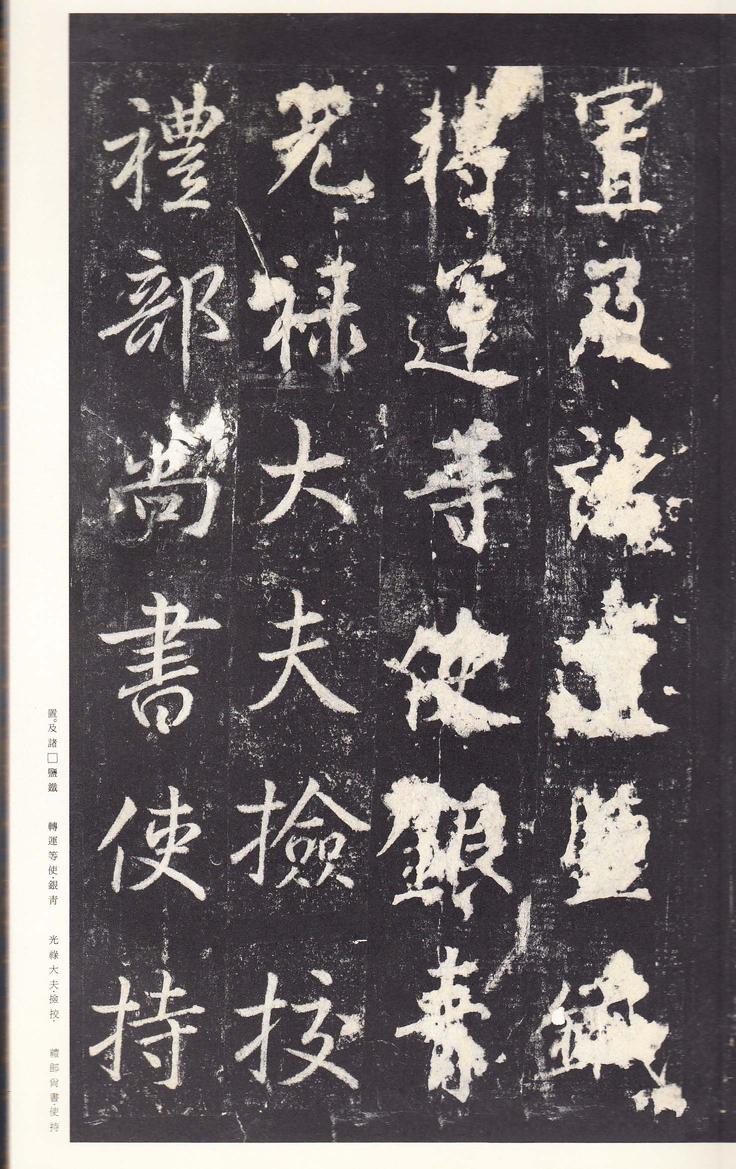 置及諸道鹽鐵
轉運等使銀青
光祿大夫撿挍
禮部尚書使持
置。及諸□鹽鐵　轉運等使・銀青　光祿大夫・撿挍・　禮部尚書・使持